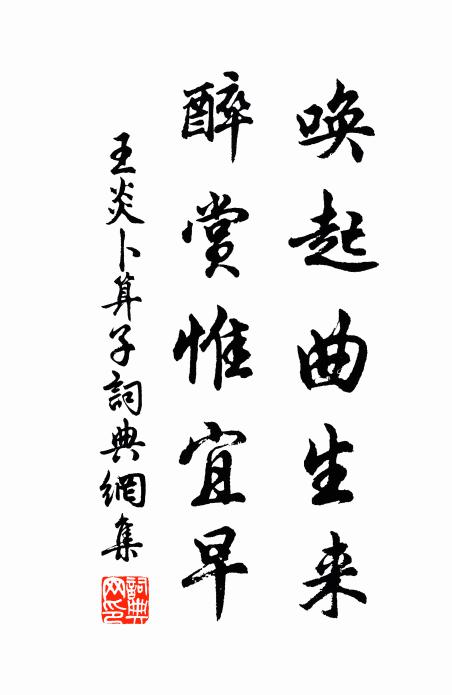 唤起曲生来
醉赏惟宜早
王炎卜算子詞典網集
詞典網印